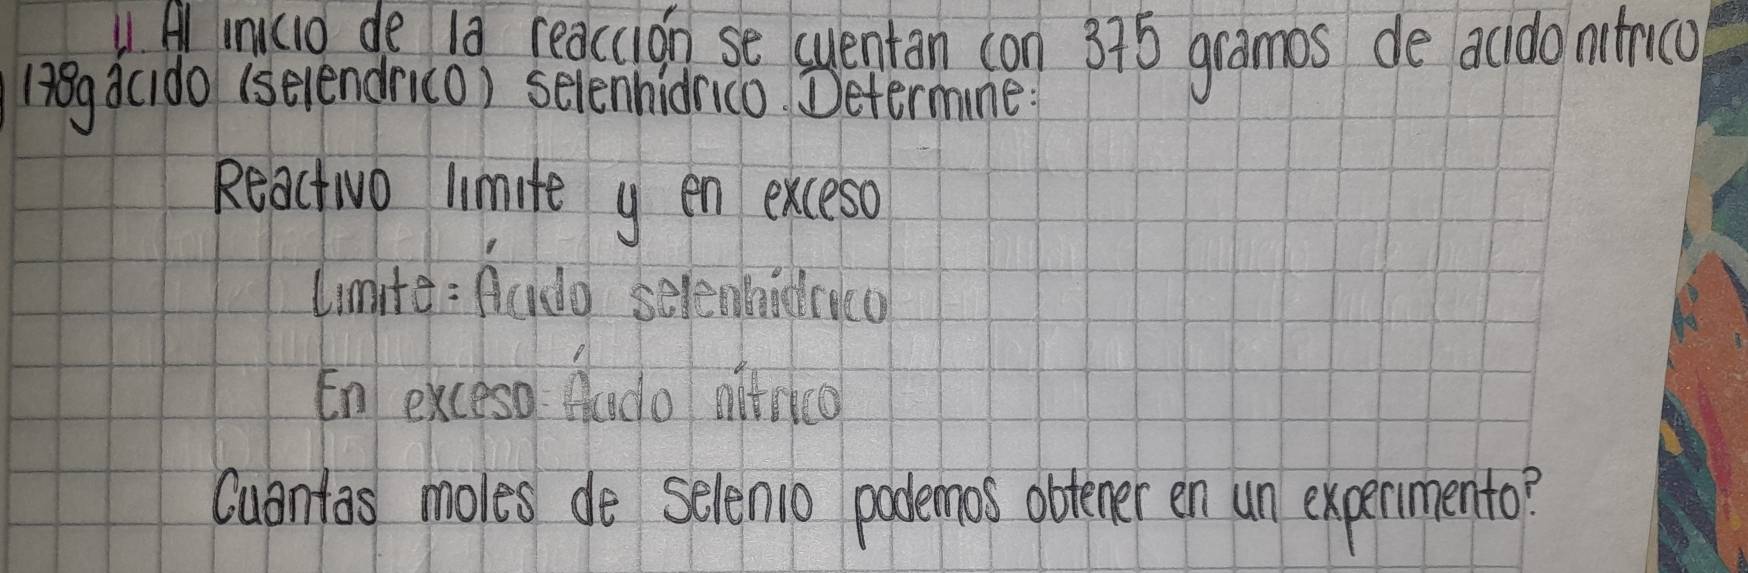 11. Al inicio de la reacción se cuentan con 375 gramos de acido nitrico
178g ácido (selendrico) selenhídrico. Determine:
Reactivo limite y en exceso
Limite: Ácido selenhídrico
En exceso: Ácido nítrico
Cuantas moles de selenio podemos obtener en un experimento?